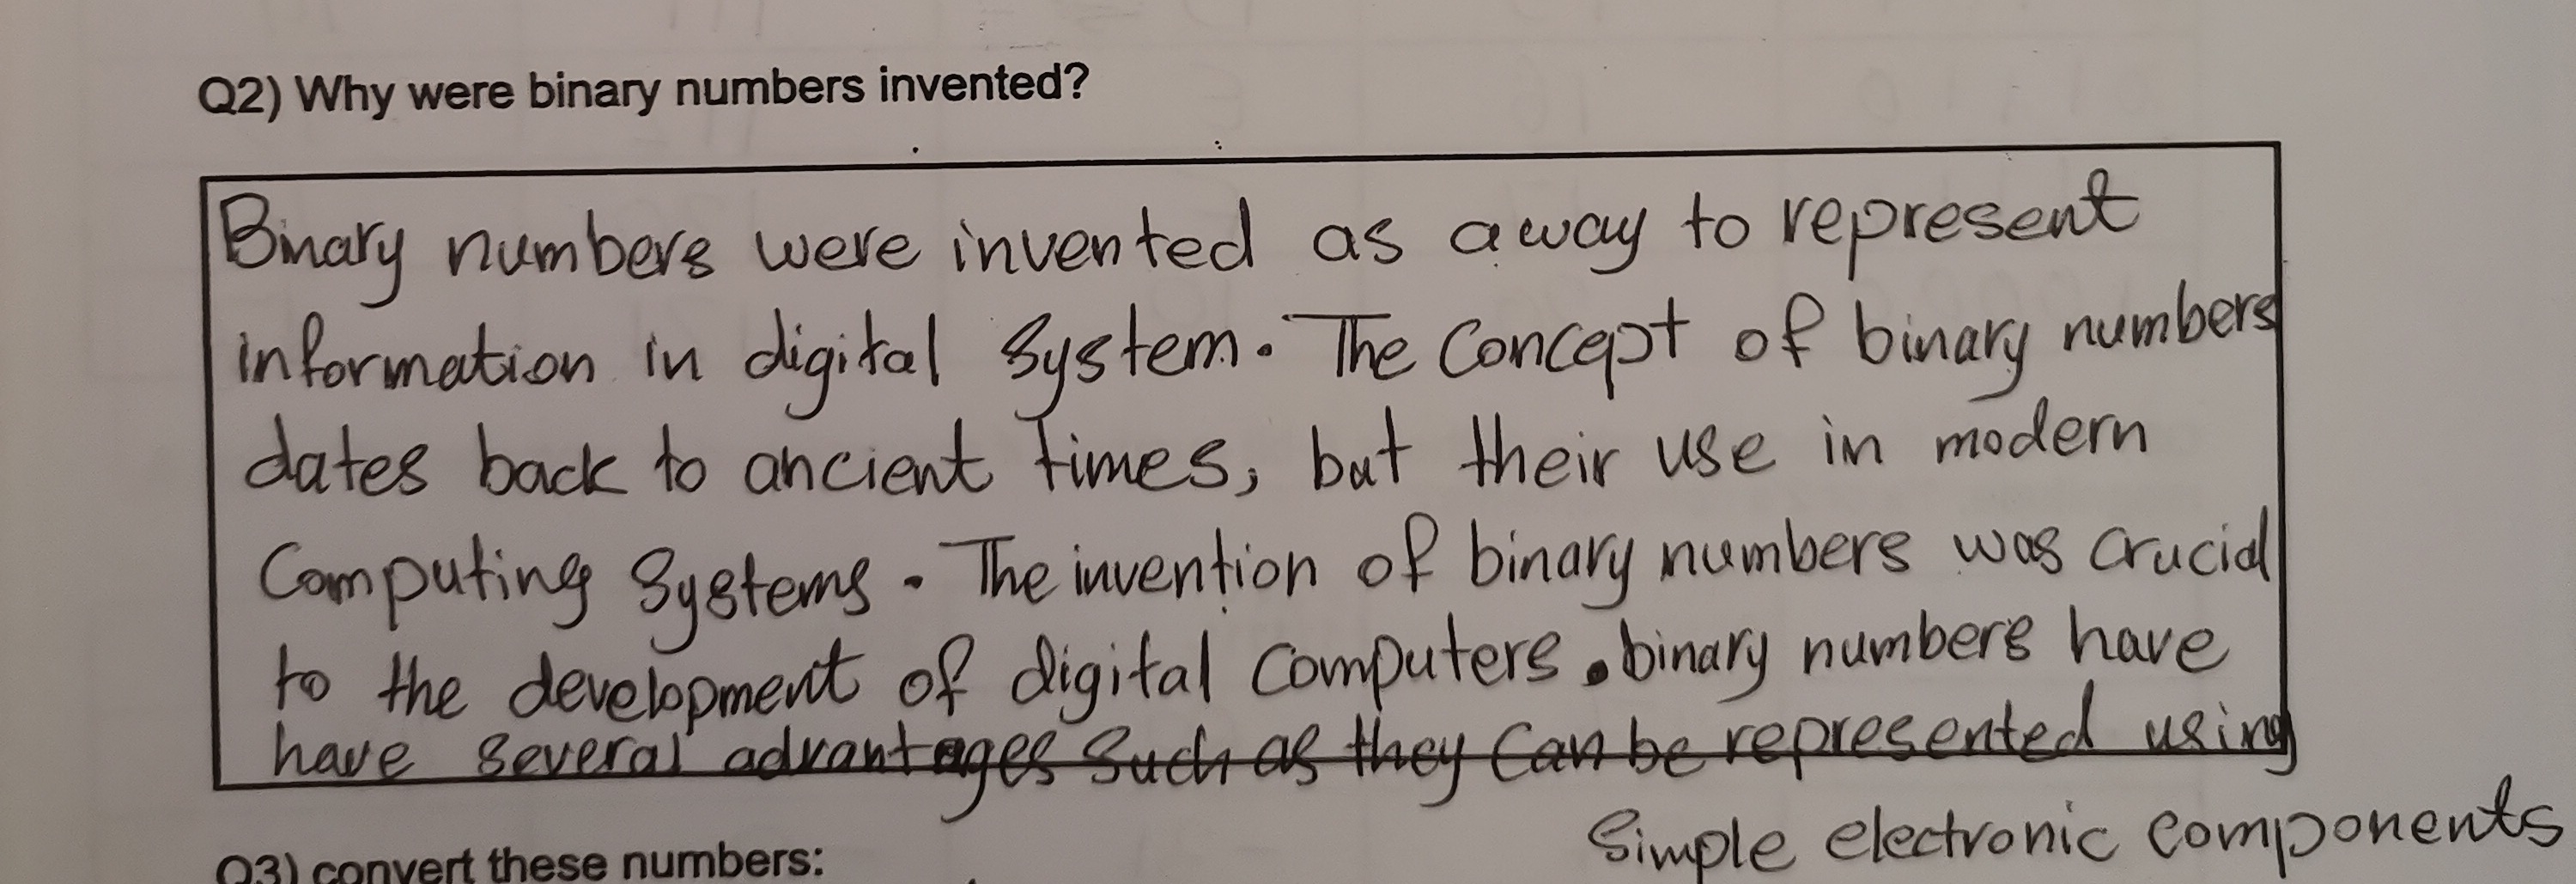 Q2) Why were binary numbers invented?
Binary numbers were invented as away to represent
information in digital System. The Concept of binary numbers
dates back to ancient times, but their use in modern
Computing Systems. The invention of binary numbers was crucial
to the development of digital Computers. binary numbers have
have several advantages such as they Can be represented using
Simple electronic components
Q3) convert these numbers: